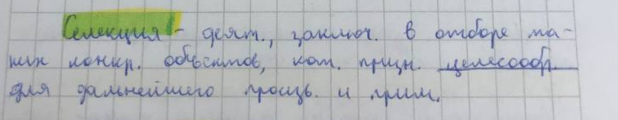 Селекция - деят., заключ. в отборе та-
ких конкр. объектов, кот. призн. целесообр.
для дальнейшего произв. и прим.